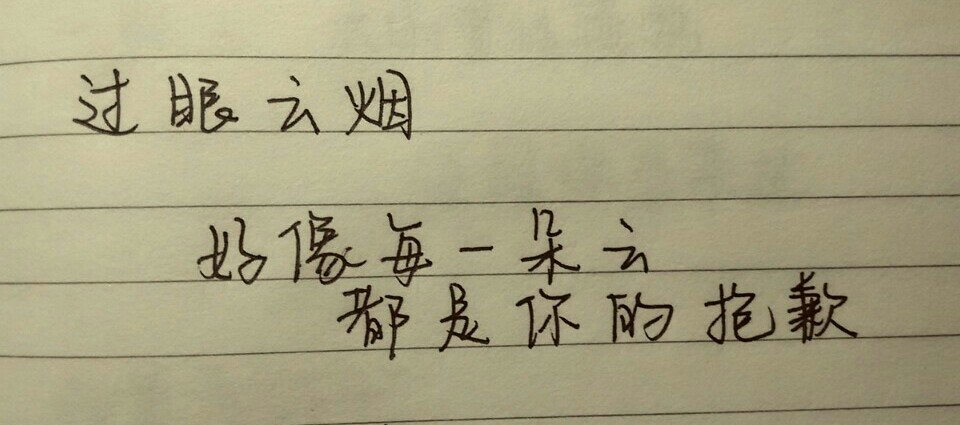 过眼云烟
好像每一朵云
都是你的抱歉